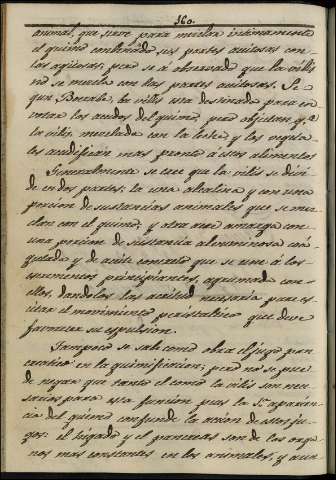 160.
animal, que sirve para mezclar intimamente
el quimo combinando sus partes aceitosas con
las aquosas; pero se á observado que la vilis
no se mezcla con las partes aceitosas. Se-
gun Boerale, la vilis esta destinada para en
volver los acidos del quimo; pero objetan q.e
la vilis mezclada con la leche, y los vegeta
les acidifican mas pronto á estos alimentos
Generalmente se cree que la vilis se divi
de en dos partes; la una alcalina y con una
porcion de sustancias animales que se mez
clan con el quimo; y otra acre amarga con
una porcion de sustancia albuminosa coa
gulada y de aceite concreto que se une á los
escrementos principiantes, aproximada con
ellos, dandolos la acritud necesaria para es
citar el movimiento peristaltico que debe
favorecer su espulsion.
Tampoco se sabe como obra el jugo pan
creatico en la quimificacion; pero no se pue
de negar que tanto el como la vilis son nece
sarios para esta funcion pues la S.n aparien
cia del quimo confunde la accion de estos ju
gos: el higado y el pancreas son de los orga
nos mas constantes en los animales, y aun